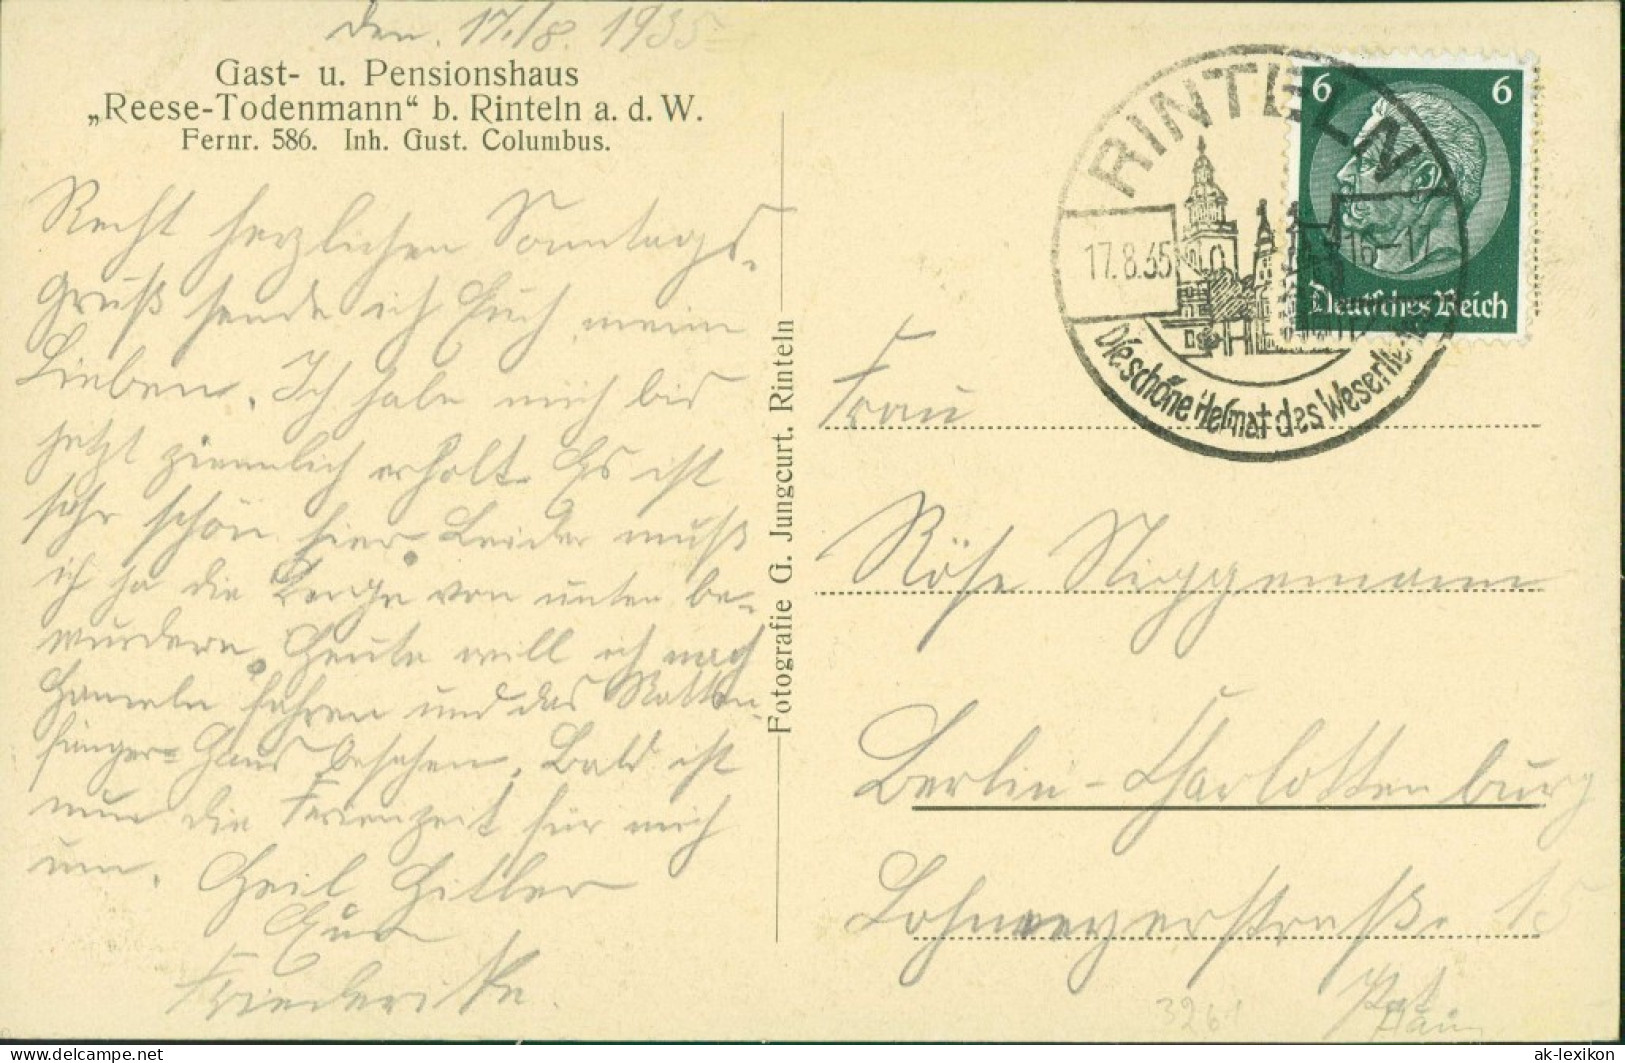 den. 17./8. 1935
Gast- u. Pensionshaus
„Reese-Todenmann“ b. Rinteln a. d. W.
Fernr. 586. Inh. Gust. Columbus.
Recht herzlichen Sonntags-
gruß sende ich Euch meine
Lieben. Ich habe mich bis
jetzt ziemlich erholt. Es ist
sehr schön hier. Leider muß
ich ja die Berge von unten be-
wundern. Heute will ich nach
Hameln fahren und das Ratten-
fänger-Haus besehen. Bald ist
nun die Ferienzeit für mich
um. Heil Hitler
Eure
Friederike.
Fotografie G. Jungcurt. Rinteln
RINTELN
17.8.35 16-17
Die schöne Heimat des
6 6
Deutsches Reich
Frau
Röse Niggemann
Berlin-Charlottenburg
Lohmeyerstraße. 15
3261
ak-lexikon